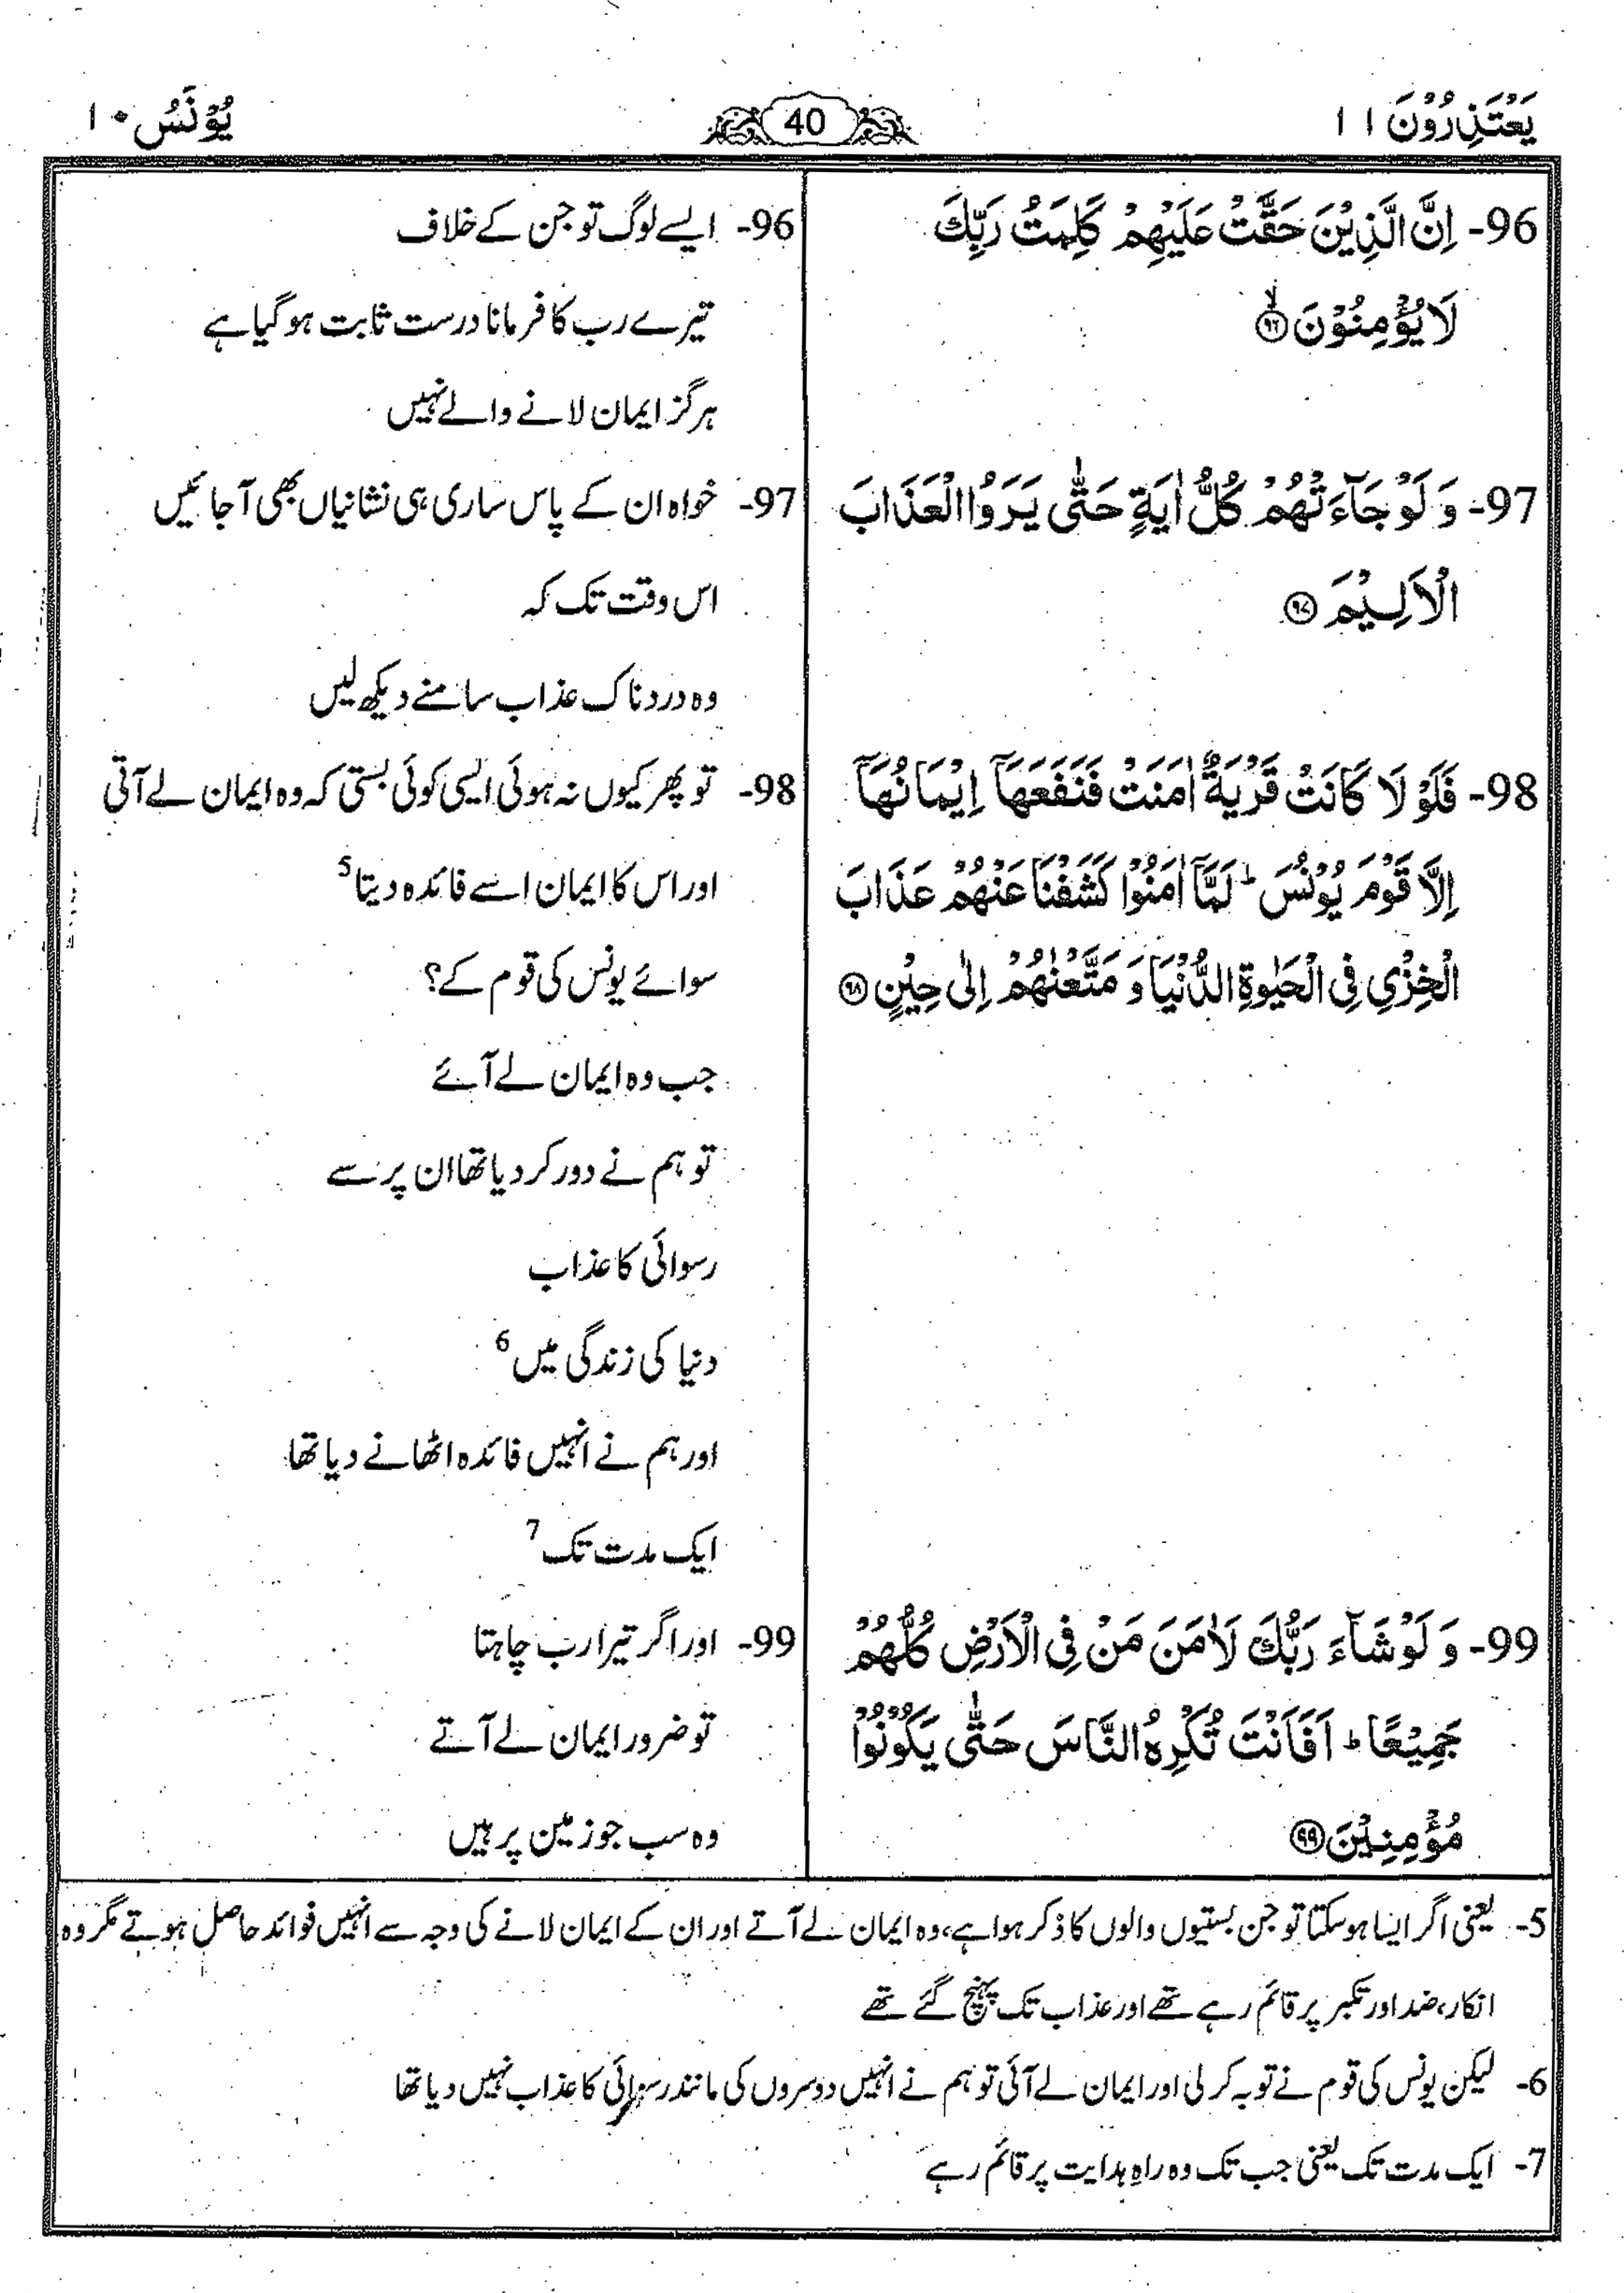 يَعْتَذِرُوْنَ ١١
40
يُوْنَسُ ١٠
96- اِنَّ الَّذِيْنَ حَقَّتْ عَلَيْهِمْ كَلِمَتُ رَبِّكَ
لَا يُؤْمِنُوْنَ ۙ﴿۹۶﴾
97- وَ لَوْ جَآءَتْهُمْ كُلُّ اٰيَةٍ حَتّٰى يَرَوُا الْعَذَابَ
الْاَلِيْمَ ﴿۹۷﴾
98- فَلَوْ لَا كَانَتْ قَرْيَةٌ اٰمَنَتْ فَنَفَعَهَاۤ اِيْمَانُهَاۤ
اِلَّا قَوْمَ يُوْنُسَ ؕ لَمَّاۤ اٰمَنُوْا كَشَفْنَا عَنْهُمْ عَذَابَ
الْخِزْيِ فِى الْحَيٰوةِ الدُّنْيَا وَ مَتَّعْنٰهُمْ اِلٰى حِيْنٍ ﴿۹۸﴾
99- وَ لَوْ شَآءَ رَبُّكَ لَاٰمَنَ مَنْ فِى الْاَرْضِ كُلُّهُمْ
جَمِيْعًا ؕ اَفَاَنْتَ تُكْرِهُ النَّاسَ حَتّٰى يَكُوْنُوْا
مُؤْمِنِيْنَ ﴿۹۹﴾
96- ایسے لوگ تو جن کے خلاف
تیرے رب کا فرمانا درست ثابت ہو گیا ہے
ہرگز ایمان لانے والے نہیں
97- خواہ ان کے پاس ساری ہی نشانیاں بھی آ جائیں
اس وقت تک کہ
وہ دردناک عذاب سامنے دیکھ لیں
98- تو پھر کیوں نہ ہوئی ایسی کوئی بستی کہ وہ ایمان لے آتی
اور اس کا ایمان اسے فائدہ دیتا 5
سوائے یونس کی قوم کے؟
جب وہ ایمان لے آئے
تو ہم نے دور کر دیا تھا ان پر سے
رسوائی کا عذاب
دنیا کی زندگی میں 6
اور ہم نے انہیں فائدہ اٹھانے دیا تھا
ایک مدت تک 7
99- اور اگر تیرا رب چاہتا
تو ضرور ایمان لے آتے
وہ سب جو زمین پر ہیں
5- یعنی اگر ایسا ہو سکتا تو جن بستیوں والوں کا ذکر ہوا ہے، وہ ایمان لے آتے اور ان کے ایمان لانے کی وجہ سے انہیں فوائد حاصل ہوتے مگر وہ
انکار، ضد اور تکبر پر قائم رہے تھے اور عذاب تک پہنچ گئے تھے
6- لیکن یونس کی قوم نے توبہ کر لی اور ایمان لے آئی تو ہم نے انہیں دوسروں کی مانند رسوائی کا عذاب نہیں دیا تھا
7- ایک مدت تک یعنی جب تک وہ راہِ ہدایت پر قائم رہے